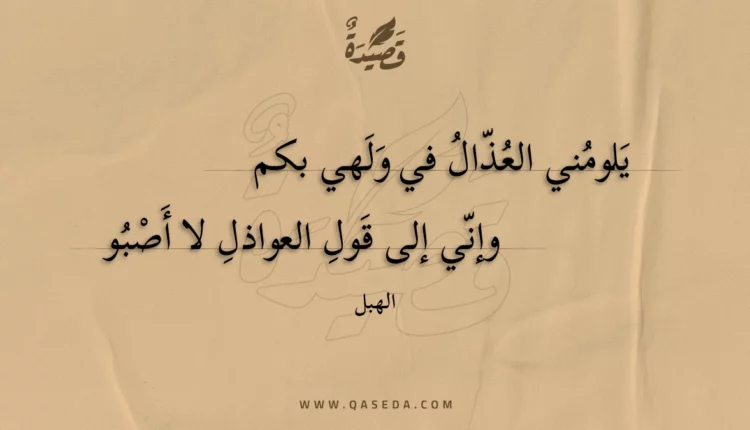 قَصِيْدَةٌ
يَلومُني العُذّالُ في وَلَهي بكم
وإنّي إلى قَولِ العواذلِ لا أَصْبُو
الهبل
WWW.QASEDA.COM